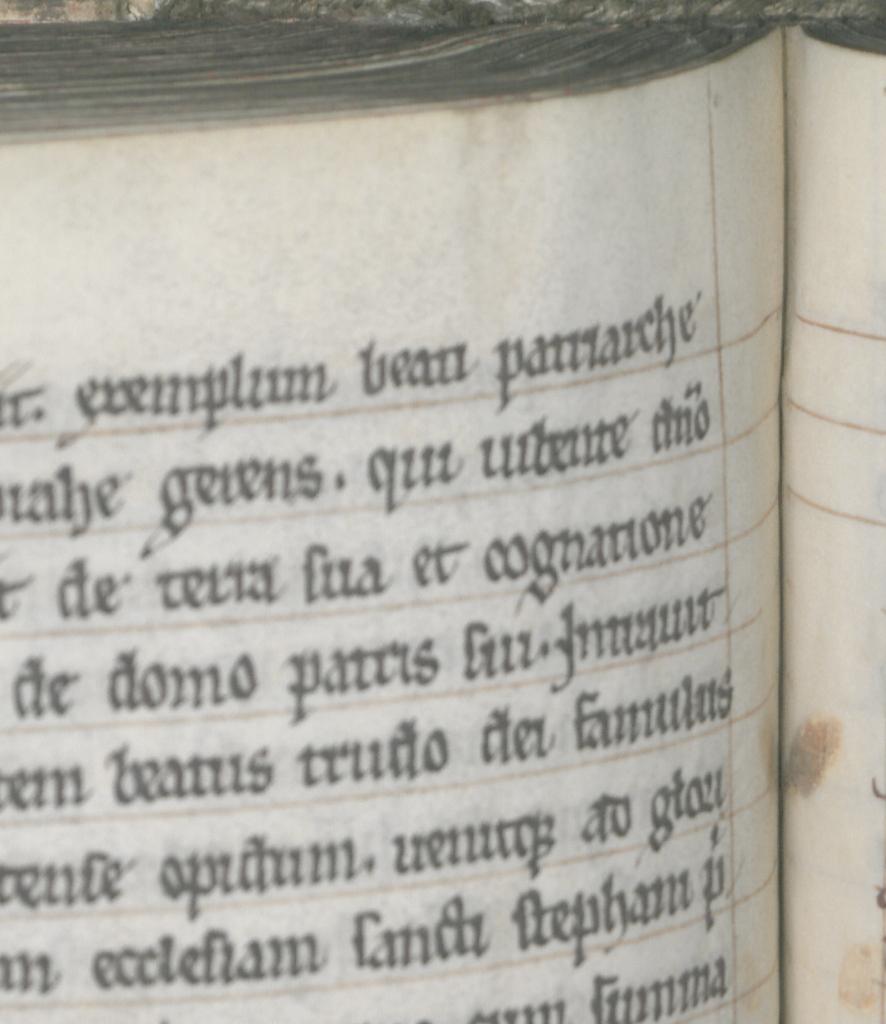 exemplum beati patriarche
gerens. qui iubente dño
de terra sua et cognatione
de domo patris sui. Intrauit
tem beatus trudo dei famulus
tense opidum. uenitqꝫ ad glori
ecclesiam sancti stephani p
summa